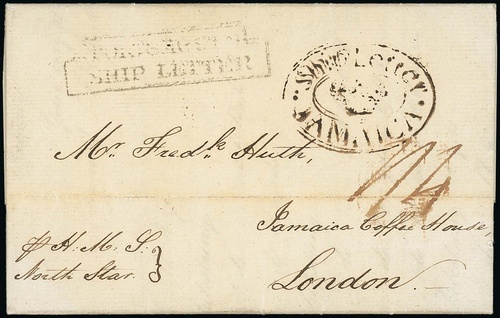 SHIP LETTER
Ship Letter
JAMAICA
Mr. Fredk. Huth,
Jamaica Coffee House
London.
p H. M. S.
North Star